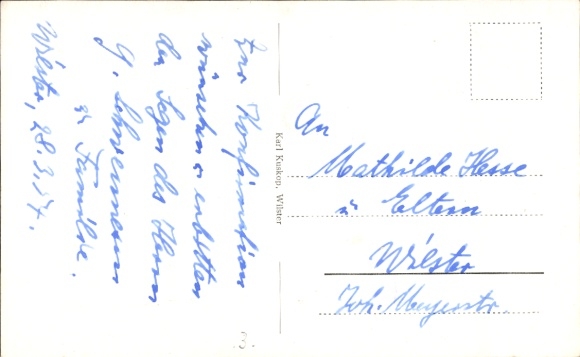 Zur Konfirmation
wünschen u. erbitten
den Segen des Herrn
G.
u. Familie.
Wilster, 28.3.57.
Karl Kuskop, Wilster
An
Mathilde Hesse
u. Eltern
Wilster
Joh. Meyerstr.
3.